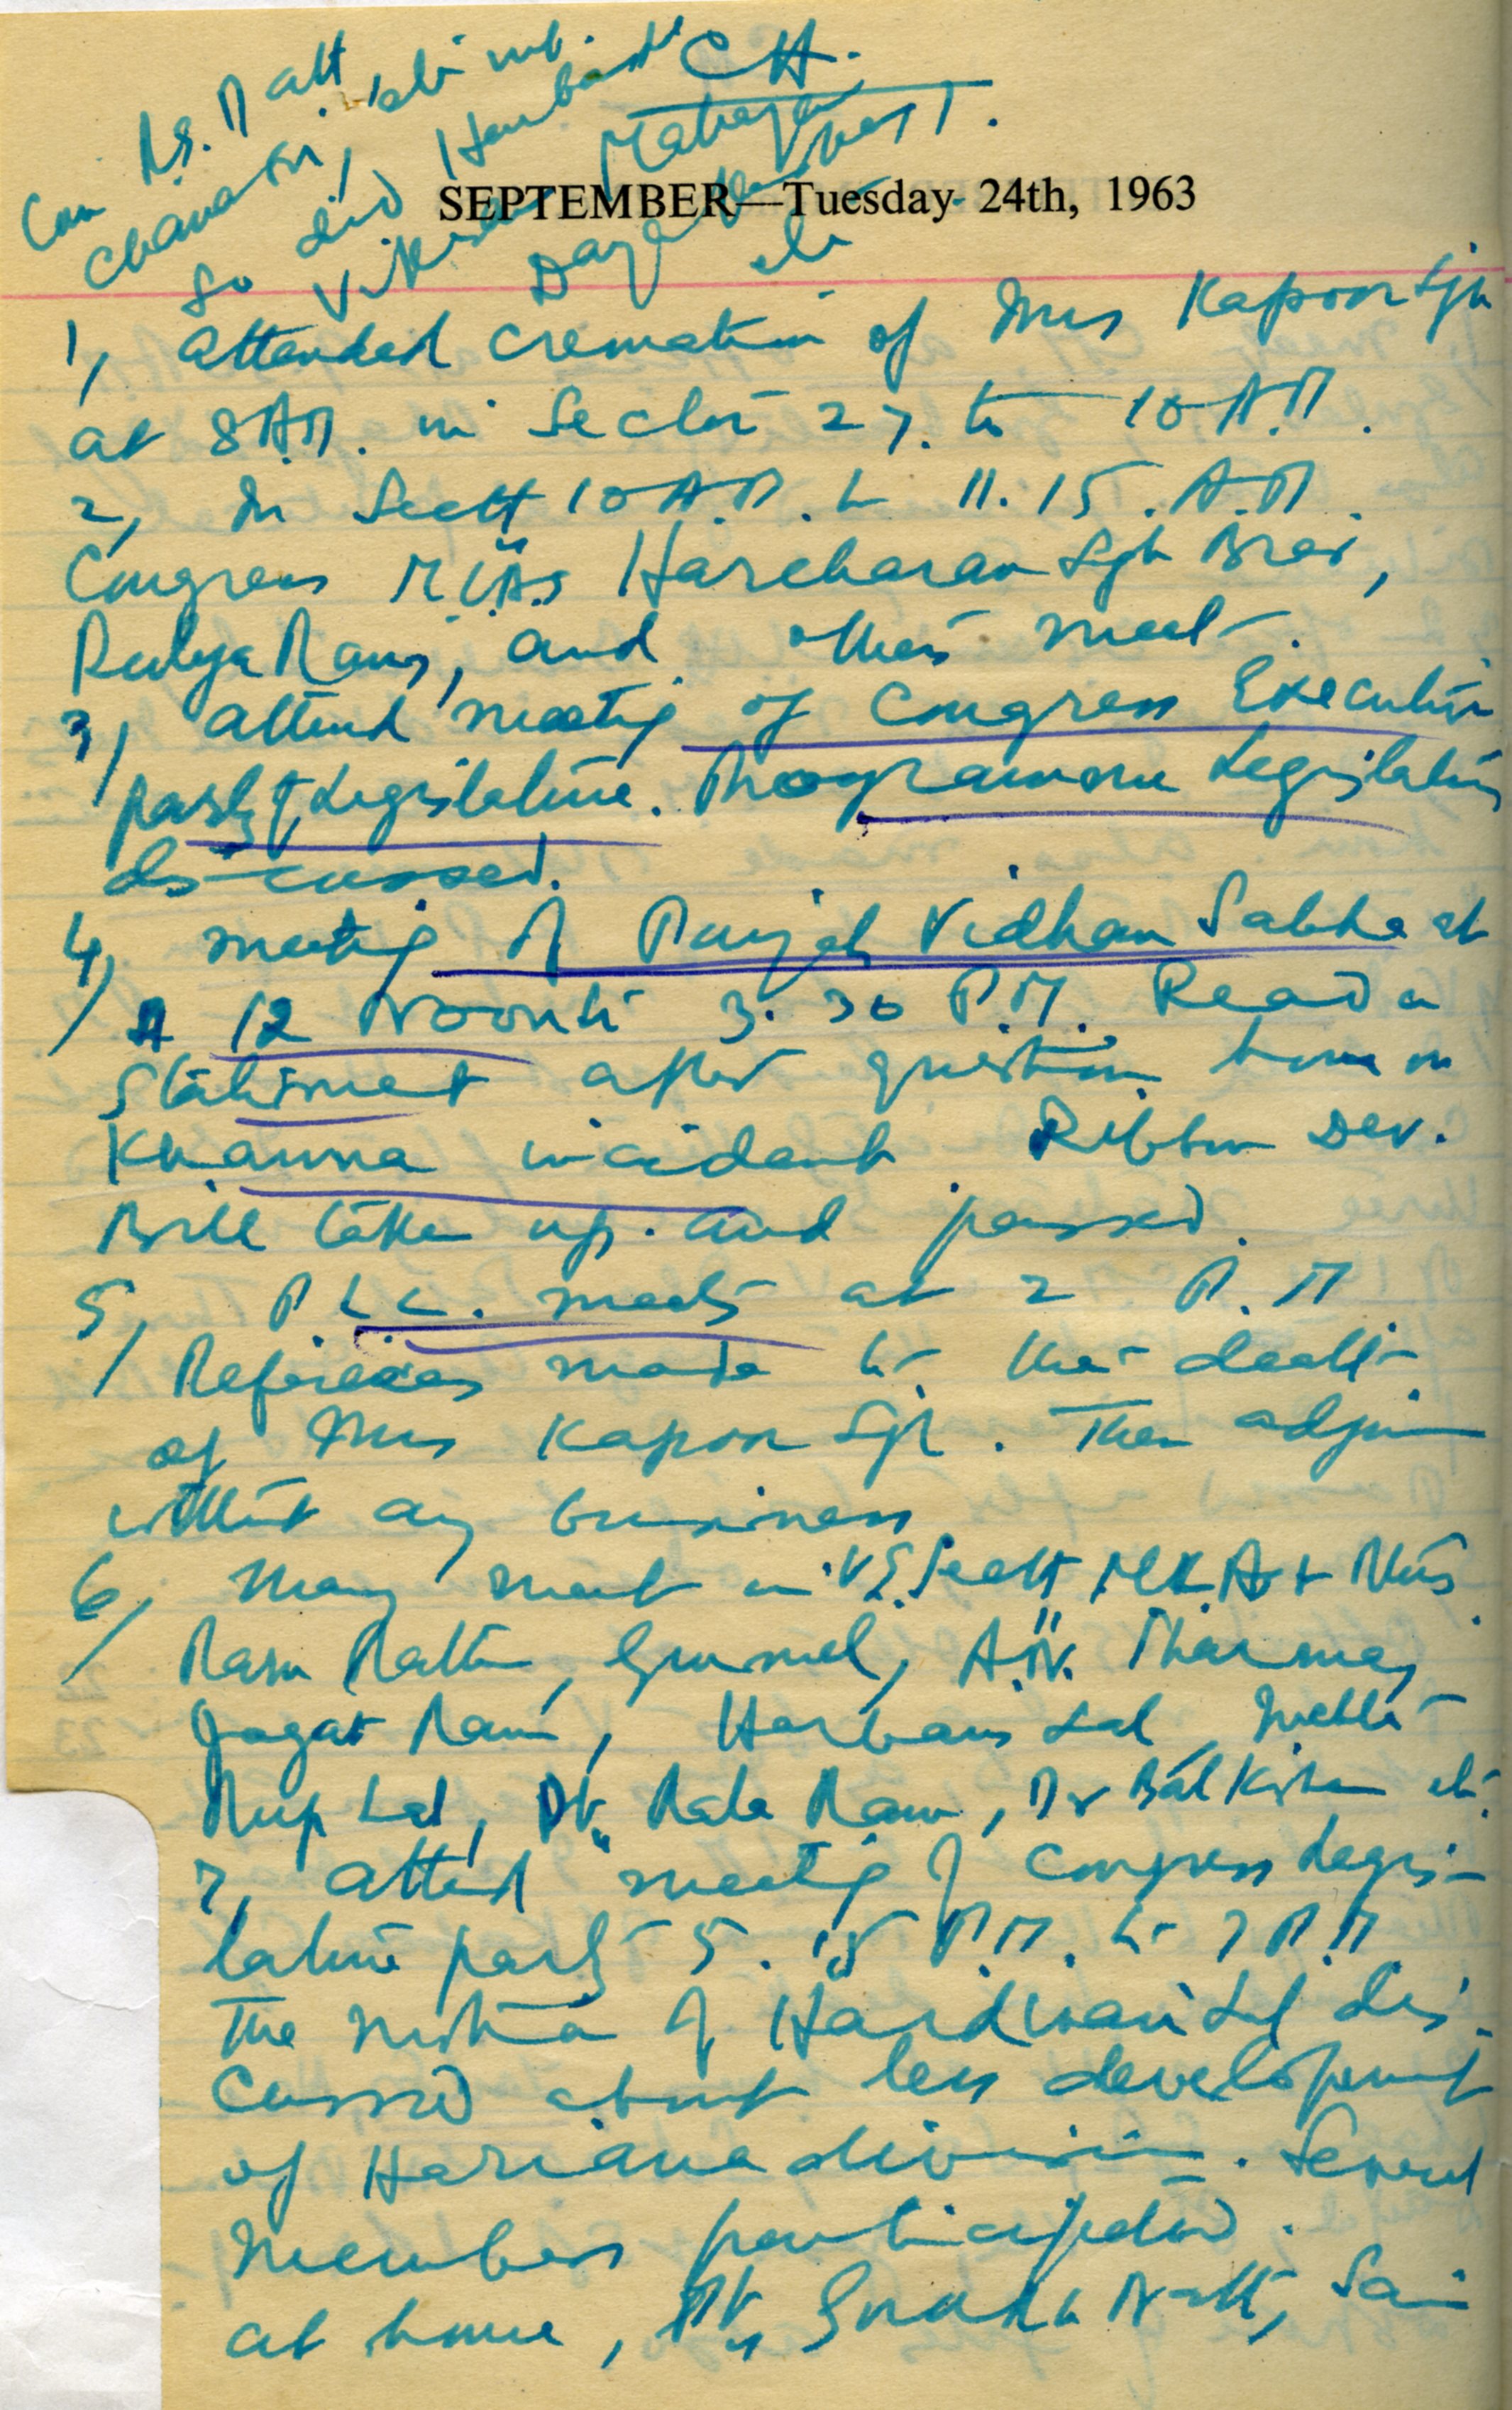 CH.
Ns. Datt, etc met.
so did Harbans
Mahajan
SEPTEMBER—Tuesday 24th, 1963
1, attended cremation of Mrs Kapoor Sgh
at 8 A.M. in Sector 27. to 10 A.M.
2, In Sectt 10 A.M. to 11.15. A.M.
Congress M.L.As Harcharan Sgh Brar,
Rulya Ram, and others meet.
3, attend meeting of Congress Executive
party of Legislature. Programme Legislative
discussed.
4, meeting of Punjab Vidhan Sabha at
12 Noon to 3.30 P.M. Read a
Statement after question hour on
Khanna incident Ribbon Dev.
Bill taken up. and passed.
5, P.L.C. meets at 2 P.M
References made to the death
of Mrs Kapoor Sgh. Then adjourn
without any business
6, Many meet in V.S. Sectt M.L.A +
Ram Rattan, Gurmel, A.N. Sharma,
Jagat Ram, Harbans Lal, Mehta
Rup Lal, Pt. Rala Ram, Dr Bal Kishan etc.
7, attend meeting of Congress Legis-
lative party 5.15 P.M. to 7 P.M
The motion of Hardwari Lal dis-
cussed about less development
of Hariana division. Several
members participated.
at home, Pt. Gorakh Nath, Sai